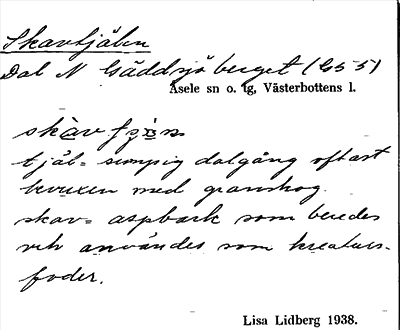 Skavtjälen
Dal N Gäddsjöberget (G55)
Åsele sn o. tg, Västerbottens l.
tjäl= sumpig dalgång oftast
bevuxen med granskog.
skav= aspbark som beredes
och användes som kreaturs-
foder.
Lisa Lidberg 1938.